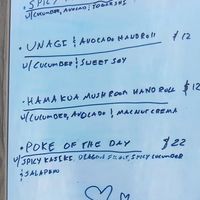 SPICY
W/CUCUMBER, AVOCADO, TOGARASHI
• UNAGI & AVOCADO HANDROLL $12
W/CUCUMBER & SWEET SOY
• HAMAKUA MUSHROOM HANDROLL $12
W/CUCUMBER, AVOCADO & MACNUT CREMA
• POKE OF THE DAY $22
W/SPICY KASEKE, DRAGON FRUIT, SPICY CUCUMBER
& JALAPEÑO